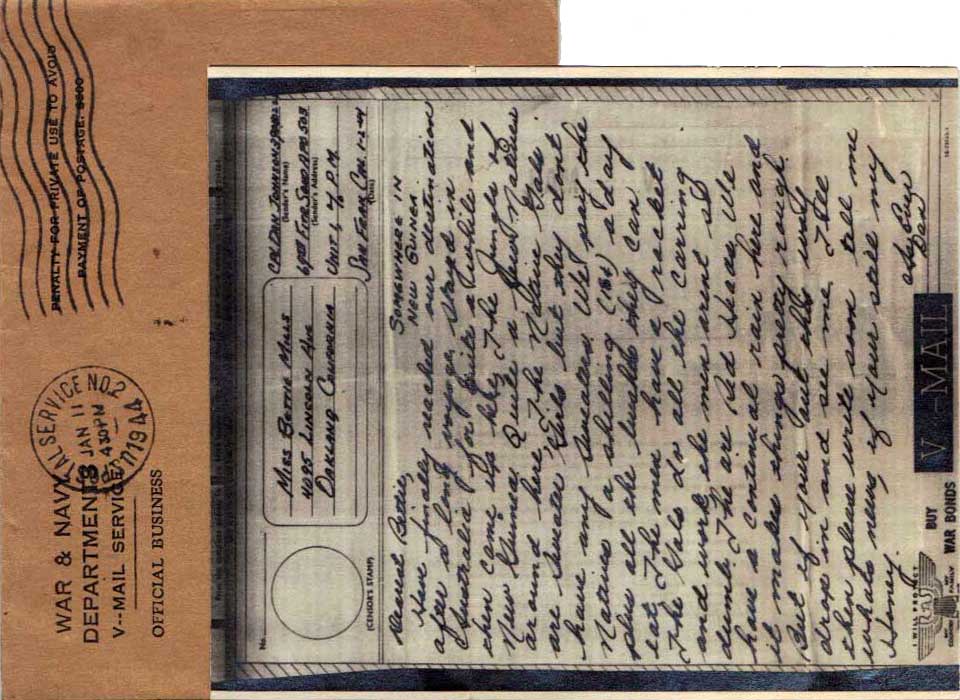 WAR & NAVY
DEPARTMENTS
V--MAIL SERVICE
OFFICIAL BUSINESS
PENALTY FOR PRIVATE USE TO AVOID
PAYMENT OF POSTAGE, $300
POSTAL SERVICE NO. 2
JAN 11
430 PM
1944
No.
(CENSOR'S STAMP)
MISS BETTIE MILLS
4095 LINCOLN AVE
OAKLAND CALIFORNIA
(Sender's Name)
(Sender's Address)
UNIT 1 % P.M.
SAN FRAN. CAL. 1-2-44
(Date)
SOMEWHERE IN
NEW GUINEA
Dearest Bettie,
Have finally reached our destination
after a long voyage, stayed in
Australia for quite awhile and
then came up here. The Jungle of
New Guinea. Quite a few natives
around here. The Native Gals
are Sweater Girls but they dont
have any sweaters. We pay the
Natives a shilling (16¢) a day
plus all the they can
eat. The men have a racket
The Gals do all the carring
and work, the men arent so
dumb. The are Bad Heads. We
have a continual rain here and
it makes things pretty rough.
But if your out this way
drop in and see me.
then please write soon tell me
whats news, if your still my
Honey,
Always
Dan
V···–MAIL
I WILL PROTECT
MY COUNTRY
MY FAMILY
BUY
WAR BONDS